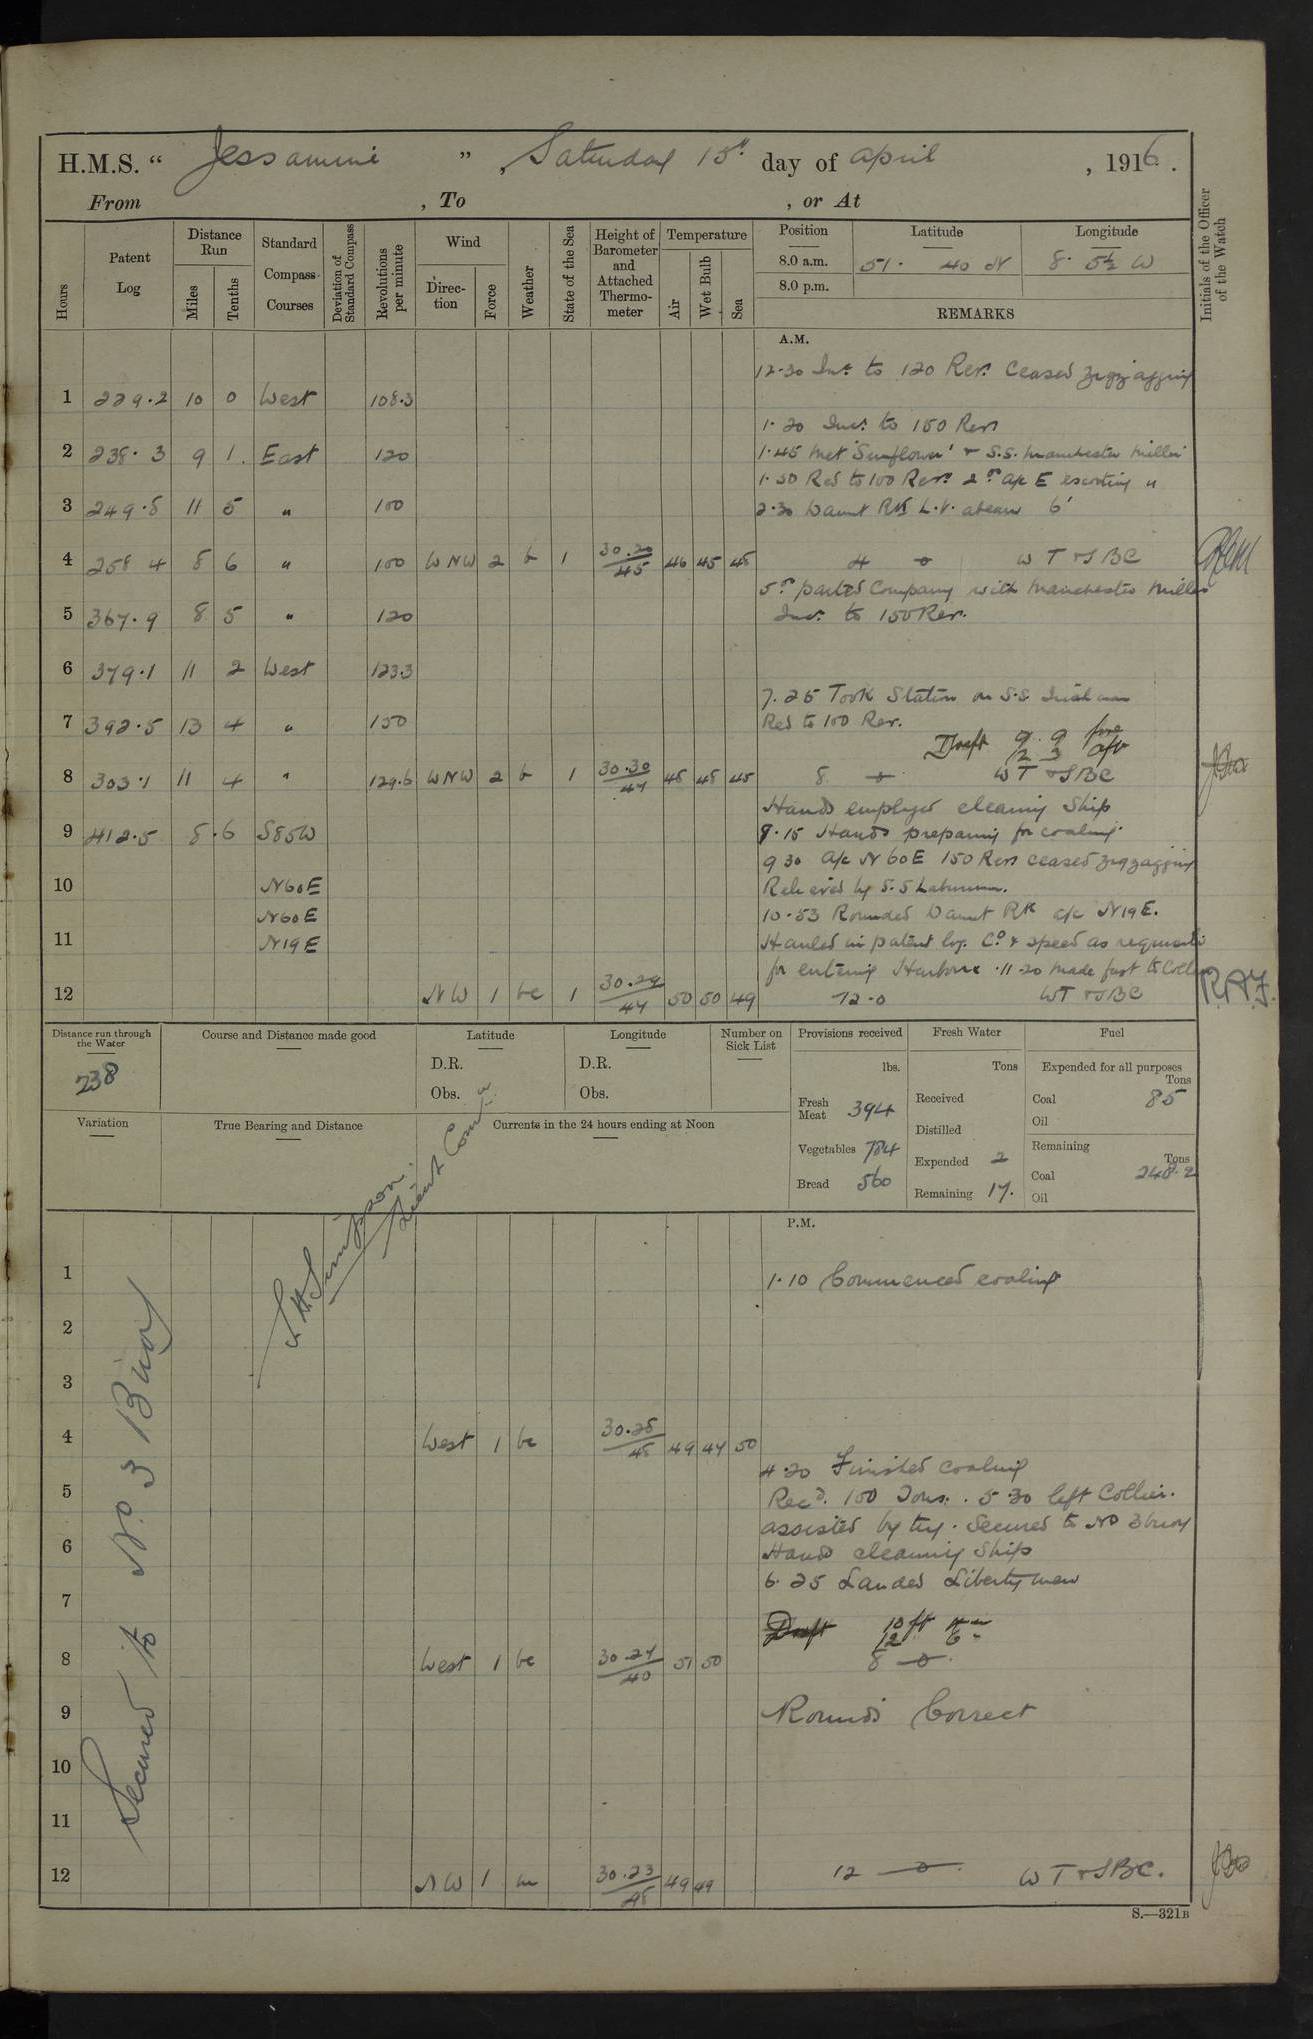 H.M.S. “ Jessamine ”, Saturday 15th day of April , 1916.
From , To , or At
Hours
Patent Log
Distance Run
Miles
Tenths
Standard Compass Courses
Deviation of Standard Compass
Revolutions per minute
Wind
Direction
Force
Weather
State of the Sea
Height of Barometer and Attached Thermometer
Temperature
Air
Wet Bulb
Sea
Position Latitude Longitude
8.0 a.m. 51. 40 N 8. 5½ W
8.0 p.m.
REMARKS
Initials of the Officer of the Watch
A.M.
12.30 Inc. to 120 Revs. Ceased zigzagging
1 229.2 10 0 West 108.3
1.20 Inc. to 150 Revs
2 238.3 9 1 East 120 1.45 Met 'Sunflower' & S.S. Manchester Miller
1.50 Red to 100 Revs. 2.0 a/c E escorting "
3 249.8 11 5 " 100 2.30 Daunt Rk L.V. abeam 6'
4 258 4 8 6 " 100 WNW 2 b 1 30.20/45 46 45 45 4 0 WT & SBC
5.0 parted Company with Manchester Miller
5 367.9 8 5 " 120 Inc. to 150 Rev.
6 379.1 11 2 West 123.3
7.25 Took Station on S.S.
7 392.5 13 4 " 150 Red to 100 Rev.
Draft 9 9 fore
12 3 aft
8 303.1 11 4 " 129.6 WNW 2 b 1 30.30/47 48 48 45 8 0 WT & SBC
Hands employed cleaning Ship
9 412.5 8.6 S85W 8.15 Hands preparing for coaling.
9 30 a/c N60E 150 Revs ceased zigzagging
10 N60E Relieved by S.S Laburnum.
N60E 10.53 Rounded Daunt Rk a/c N19E.
11 N19E Hauled in patent log. Co. & speed as requisite
for entering Harbour. 11.20 made fast to Collier
12 NW 1 bc 1 30.29/47 50 50 49 12.0 WT & SBC
R.A.F.
Distance run through the Water
238
Course and Distance made good
Latitude
D.R.
Obs.
Longitude
D.R.
Obs.
Number on Sick List
Variation
True Bearing and Distance
Currents in the 24 hours ending at Noon
Provisions received
lbs.
Fresh Meat 394
Vegetables 784
Bread 560
Fresh Water
Tons
Received
Distilled
Expended 2
Remaining 17.
Fuel
Expended for all purposes
Tons
Coal 85
Oil
Remaining
Tons
Coal 248.2
Oil
S H Simpson.
Lieut Comdr
P.M.
1 1.10 Commenced coaling
2
3
4 West 1 bc 30.28/48 49 47 50
4.20 Finished coaling
5 Recd. 100 Tons. 5.30 left Collier.
assisted by tug. Secured to No 3 buoy
6 Hands cleaning Ship
6.25 Landed Liberty men
7
Draft 10 ft
12 6
8 West 1 bc 30.27/40 51 50 8 0
9 Rounds Correct
10
11
12 NW 1 m 30.23/48 49 49 12 0 WT & SBC.
Secured to No. 3 Buoy
S.—321B